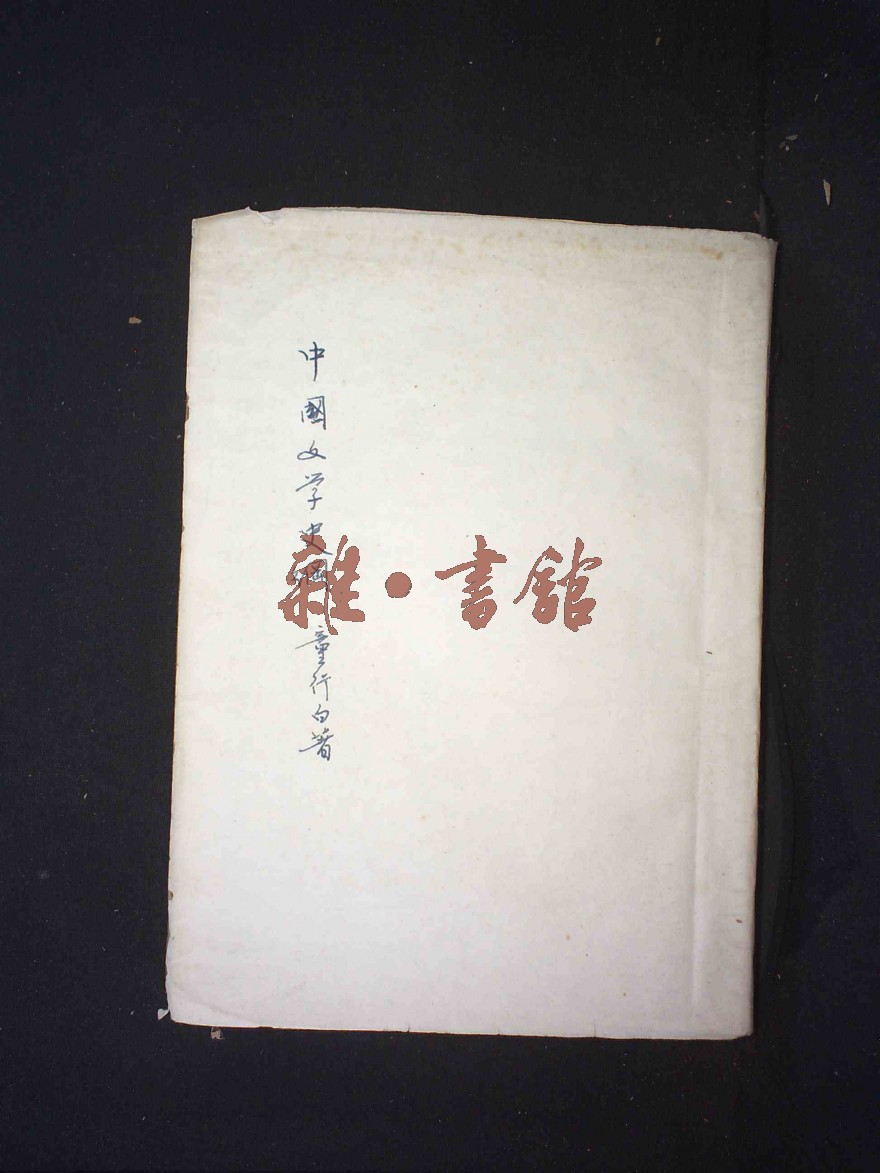 中國文学史綱 童行白著
雜·書館